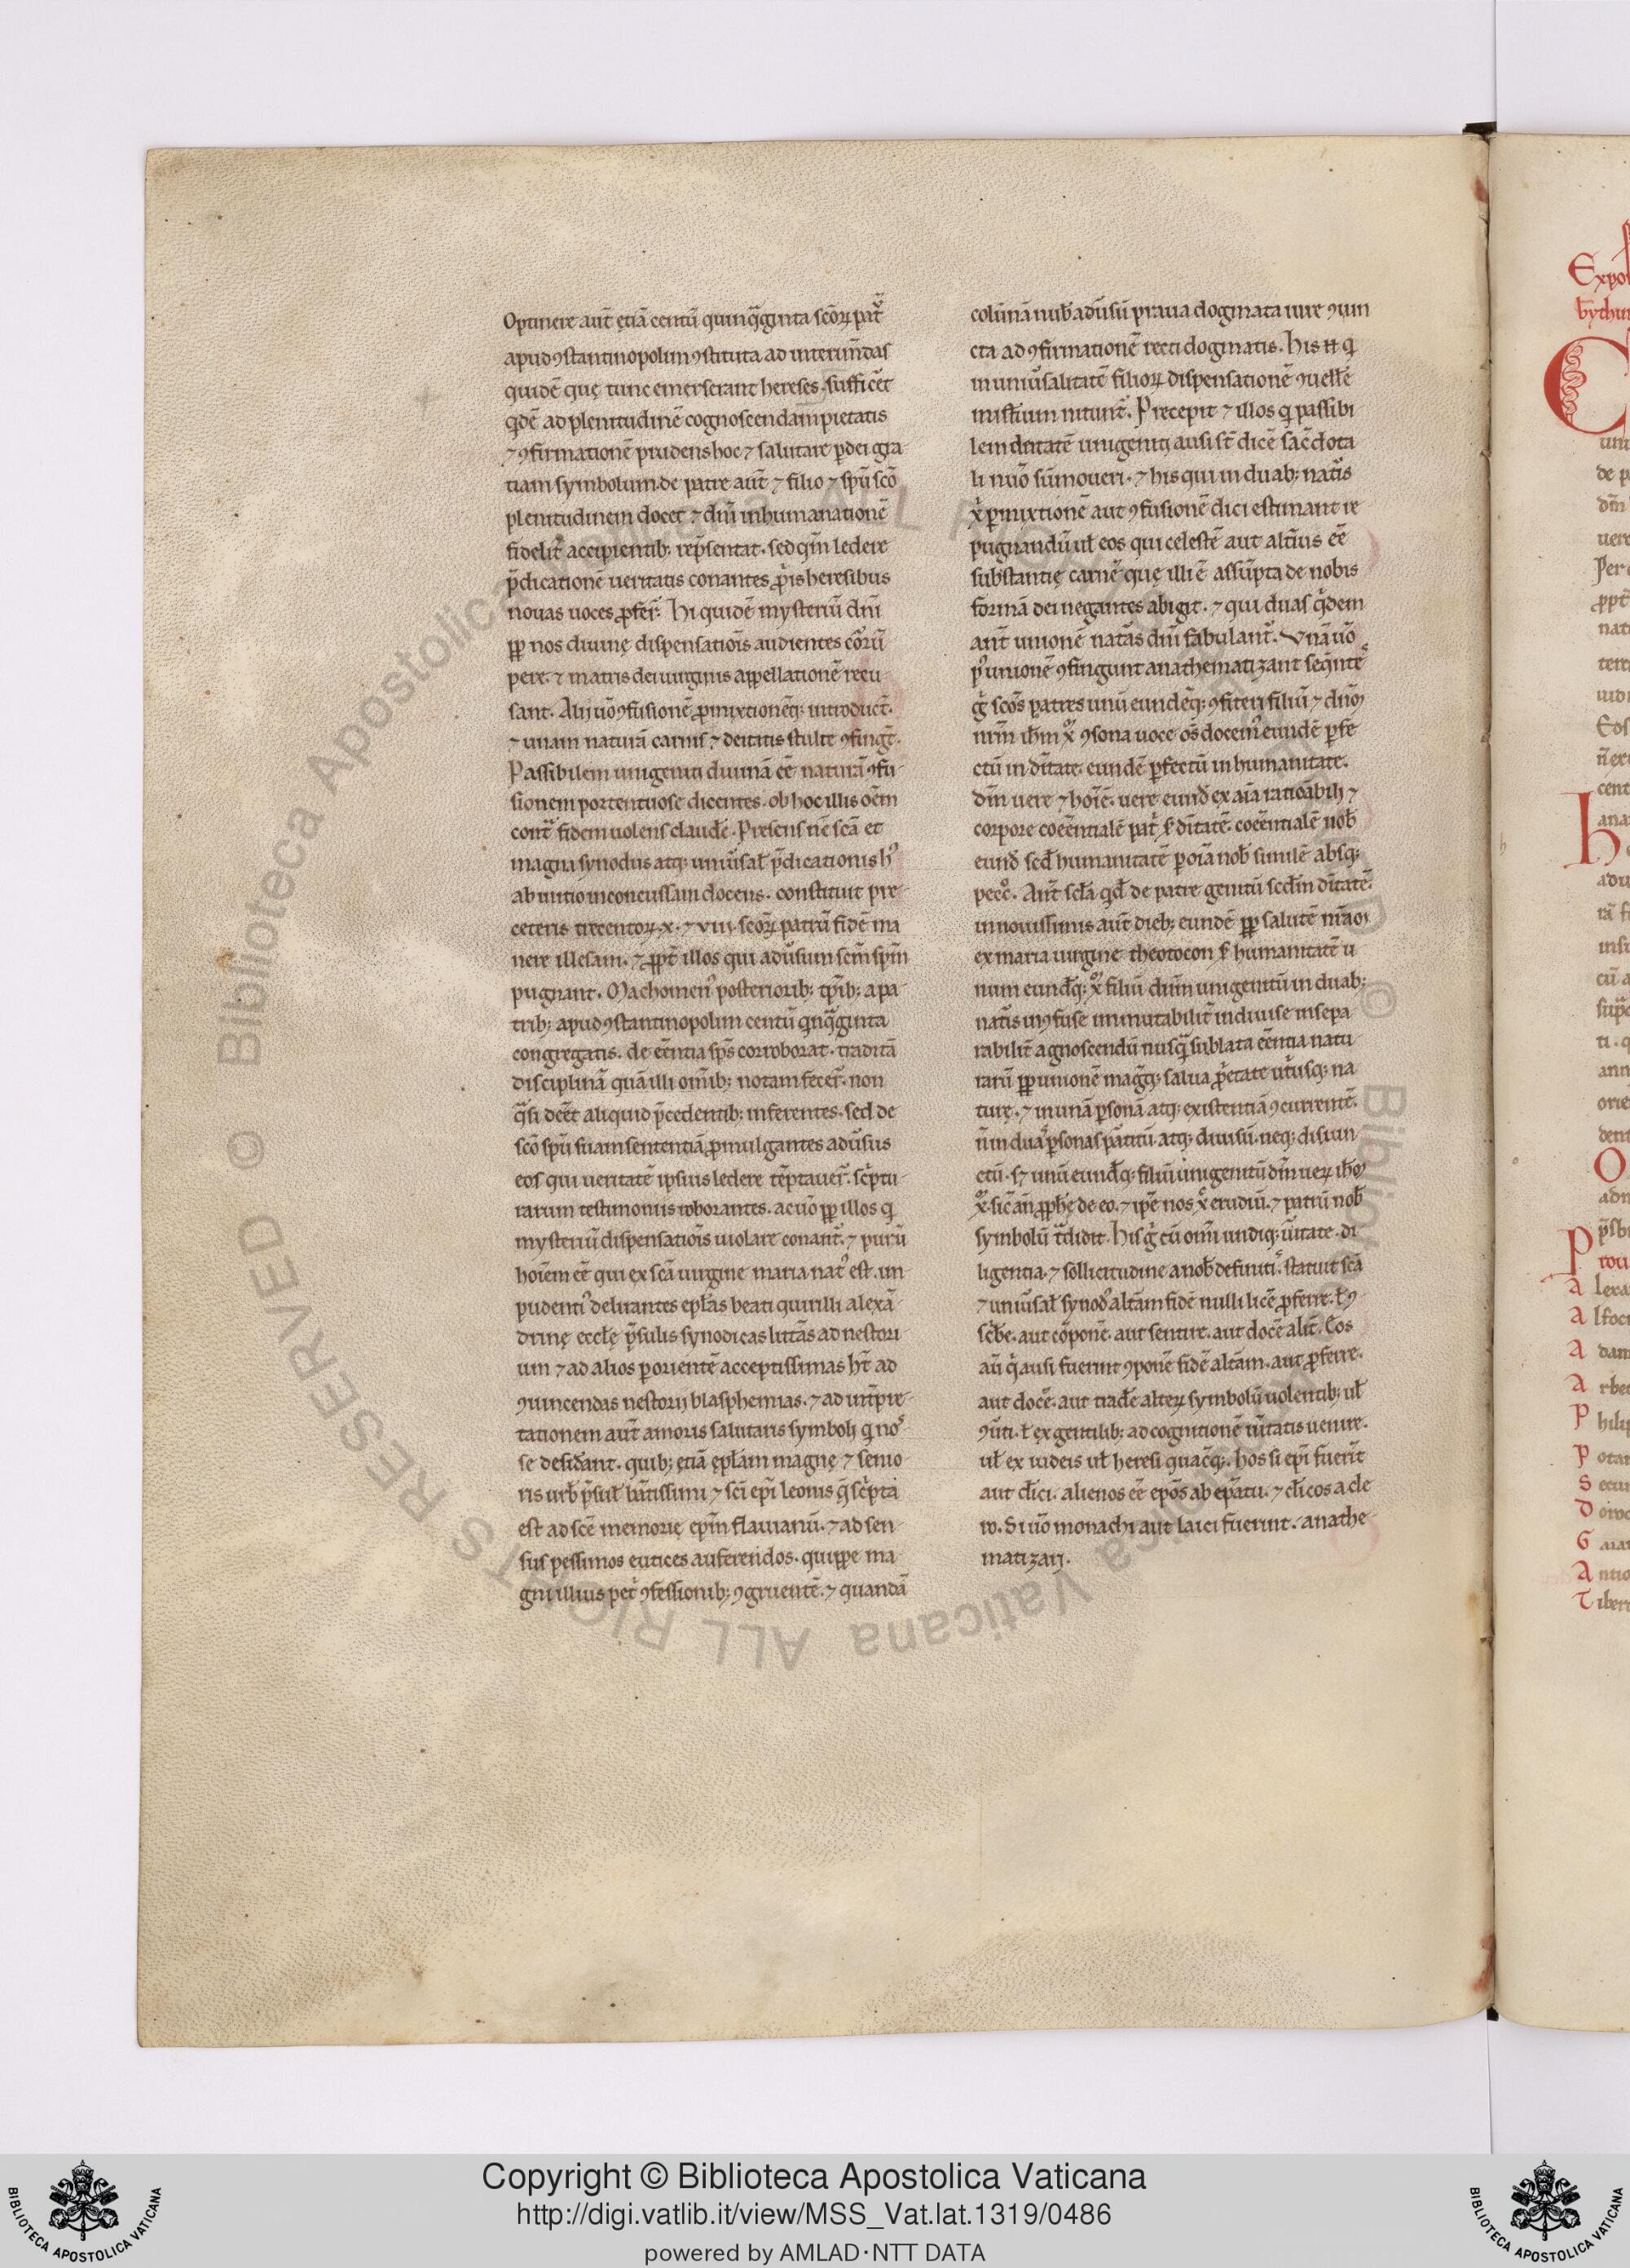 Optinere aut̄ etiā centū quinq̄ginta scōꝝ pat᷑
apud ꝯstantinopolim ꝯstituta ad interim̄das
quidē quę tunc emerserant hereses. sufficēt
q̇dē ad plenitudinē cognoscendam pietatis
⁊ ꝯfirmationē prudens hoc ⁊ salutare ꝑ dei gra
tiam symbolum de patre aut̄ ⁊ filio ⁊ sp̄u sc̄o
plenitudinem docet ⁊ dn̄i inhumanationē
fidelit̄ accipientib; rep̄sentat. sed qm̄ ledere
p̄dicationē ueritatis conantes ꝓp̀is heresibus
nouas uoces ꝓfer̄. Hi quidē mysteriū dn̄i
ꝓp nos diuinę dispensatiōis audientes cōrū
pere. ⁊ matris dei uirginis appellationē recu
sant. Alij uō ꝯfusionē ꝑmixtionēq; introduct̄.
⁊ unam naturā carnis ⁊ deitatis stulte ꝯfingt̄.
Passibilem unigeniti diuinā eē naturā ꝯfu
sionem portentuose dicentes. ob hoc illis oēm
cont̄ fidem uolens claudē. Presens nc̄ scā et
magna synodus atq; uniu̓saƚ p̄dicationis h᷒
ab initio inconcussam docens. constituit pre
ceteris trecentoꝝ .x. ⁊ viij. scōꝝ patrū fidē ma
nere illesam. ⁊ ꝓpt̄ illos qui adu̓sum scm̄ spm̄
pugnant. Machomen᷒ posteriorib; tp̄ib; a pa
trib; apud ꝯstantinopolim centū q̇nq̄ginta
congregatis. de eēntia sp̄s corroborat. traditā
disciplinā quā illi om̄ib; notam fecer̄. non
q̄si deēēt aliquid p̄cedentib; inferentes. sed de
scō sp̄u suam sententiā ꝓmulgantes adu̓sus
eos qui ueritatē ipsius ledere tēptauer̄. sc̀ptu
rarum testimoniis roborantes. ac uō ꝓp illos q̇
mysteriū dispensatiōis uiolare conant᷑. ⁊ purū
hoīem eē qui ex scā uirgine maria nat᷒ est. im
pudent᷑ delirantes epƚas beati quirilli alexā
drinę eccƚę p̄sulis synodicas litt̄as ad nestori
um ⁊ ad alios ꝑ orientē acceptissimas ht̄ ad
ꝯuincendas nestorij blasphemias. ⁊ ad int̄pre
tationem aut̄ amoris salutaris symboli q̇ nos̄
se desid̓ant. quib; etiā epƚam magnę ⁊ senio
ris urb̄ p̄suƚ bt̄issimi ⁊ sc̄i epi leonis q̄ sc̀pta
est ad sc̄e memorię epm̄ flauianū. ⁊ ad sen
sus pessimos eutices auferendos. quippe ma
gni illius pet̀ ꝯfessionib; ꝯgruentē. ⁊ quandā
colūnā nob̄ adu̓sū praua dogmata iure ꝯiun
cta ad ꝯfirmationē recti dogmatis. His ħ q̇
in uniu̓salitatē filioꝝ dispensationē ꝯuellē̄
mysterium nitunt᷑. Precepit ⁊ illos q̇ passibi
lem deitatē unigeniti ausi st̄ dicē sac̄dota
li nuō sūmoueri. ⁊ his qui in duab; nat̄is
x̀ ꝑmixtionē aut ꝯfusionē dici estimant re
pugnandū uƚ eos qui celestē aut alt̄ius eē
substantię carnē quę illi ē assūpta de nobis
formā dei negantes abigit. ⁊ qui duas q̇dem
ant̄ unionē nat̄as dn̄i fabulant᷑. Vnā uō
p᷒ unionē ꝯfingunt anathematizant seq̄ntē
g̀ scōs patres unū eundēq; ꝯfiteri filiū ⁊ dn̄m
nrm̄ ihm̄ x̄ ꝯsona uoce om̄s docem᷒ eundē ꝑfe
ctū in dītate. eundē ꝑfectū in humanitate.
dm̄ uere ⁊ hoīē. uere eund̄ ex aīa rationabili ⁊
corpore coeēntialē pat̀ s̄ dītatē. coeēntialē nob̄
eund̄ scd̄ humanitatē ꝑ oīa nob̄ similē absq;
pecc̄. Ant̄ scƚa q̇d̄ de patre genitū scdm̄ dītatē.
in nouissimis aut̄ dieb; eundē ꝓp salutē nr̄am
ex maria uirgine theotocon s̄ humanitatē u
num eundq̄; x̄ filiū dnm̄ unigenitū in duab;
nat̄is inꝯfuse inmutabilit̄ indiuise insepa
rabilit̄ agnoscendū nusq̄ sublata eēntia natu
rarū ꝓp unionē magq̄; salua ꝓp̀etate ut̓usq; na
turę. ⁊ in unā ꝑsonā atq; existentiā ꝯcurrentē.
n̄ in duas ꝑsonas ꝑtitū. atq; diuisū. neq; disiun
ctū. s; unū eundq̄; filiū unigenitū dm̄ uerꝫ ihm̄
x̄. sic an̄ ꝓphę de eo. ⁊ ipē nos x̄ erudiū. ⁊ patrū nob̄
symbolū t̄didit. His g̀ cū om̄i undiq; ūitate. di
ligentia. ⁊ sollicitudine a nob̄ definiti. statuit scā
⁊ uniu̓saƚ synod᷒ altām fidē nulli licē ꝓferre. ƚ ꝯ
sc̀be. aut cōponē. aut sentire. aut docē alit̄. Eos
aū q̇ ausi fuerint ꝯponē fidē altām. aut ꝓferre.
aut docē. aut tradē alterꝫ symbolū uolentib; uƚ
ꝯu̓ti. ƚ ex gentilib; ad cognitionē ūitatis uenire.
uƚ ex iudeis uƚ heresi quacq̄;. hos si epi fuerit̄
aut cƚici. alienos eē epōs ab epātu. ⁊ cƚicos a cle
ro. Si uō monachi aut laici fuerint. anathe
matizari.
Copyright © Biblioteca Apostolica Vaticana
http://digi.vatlib.it/view/MSS_Vat.lat.1319/0486
powered by AMLAD·NTT DATA